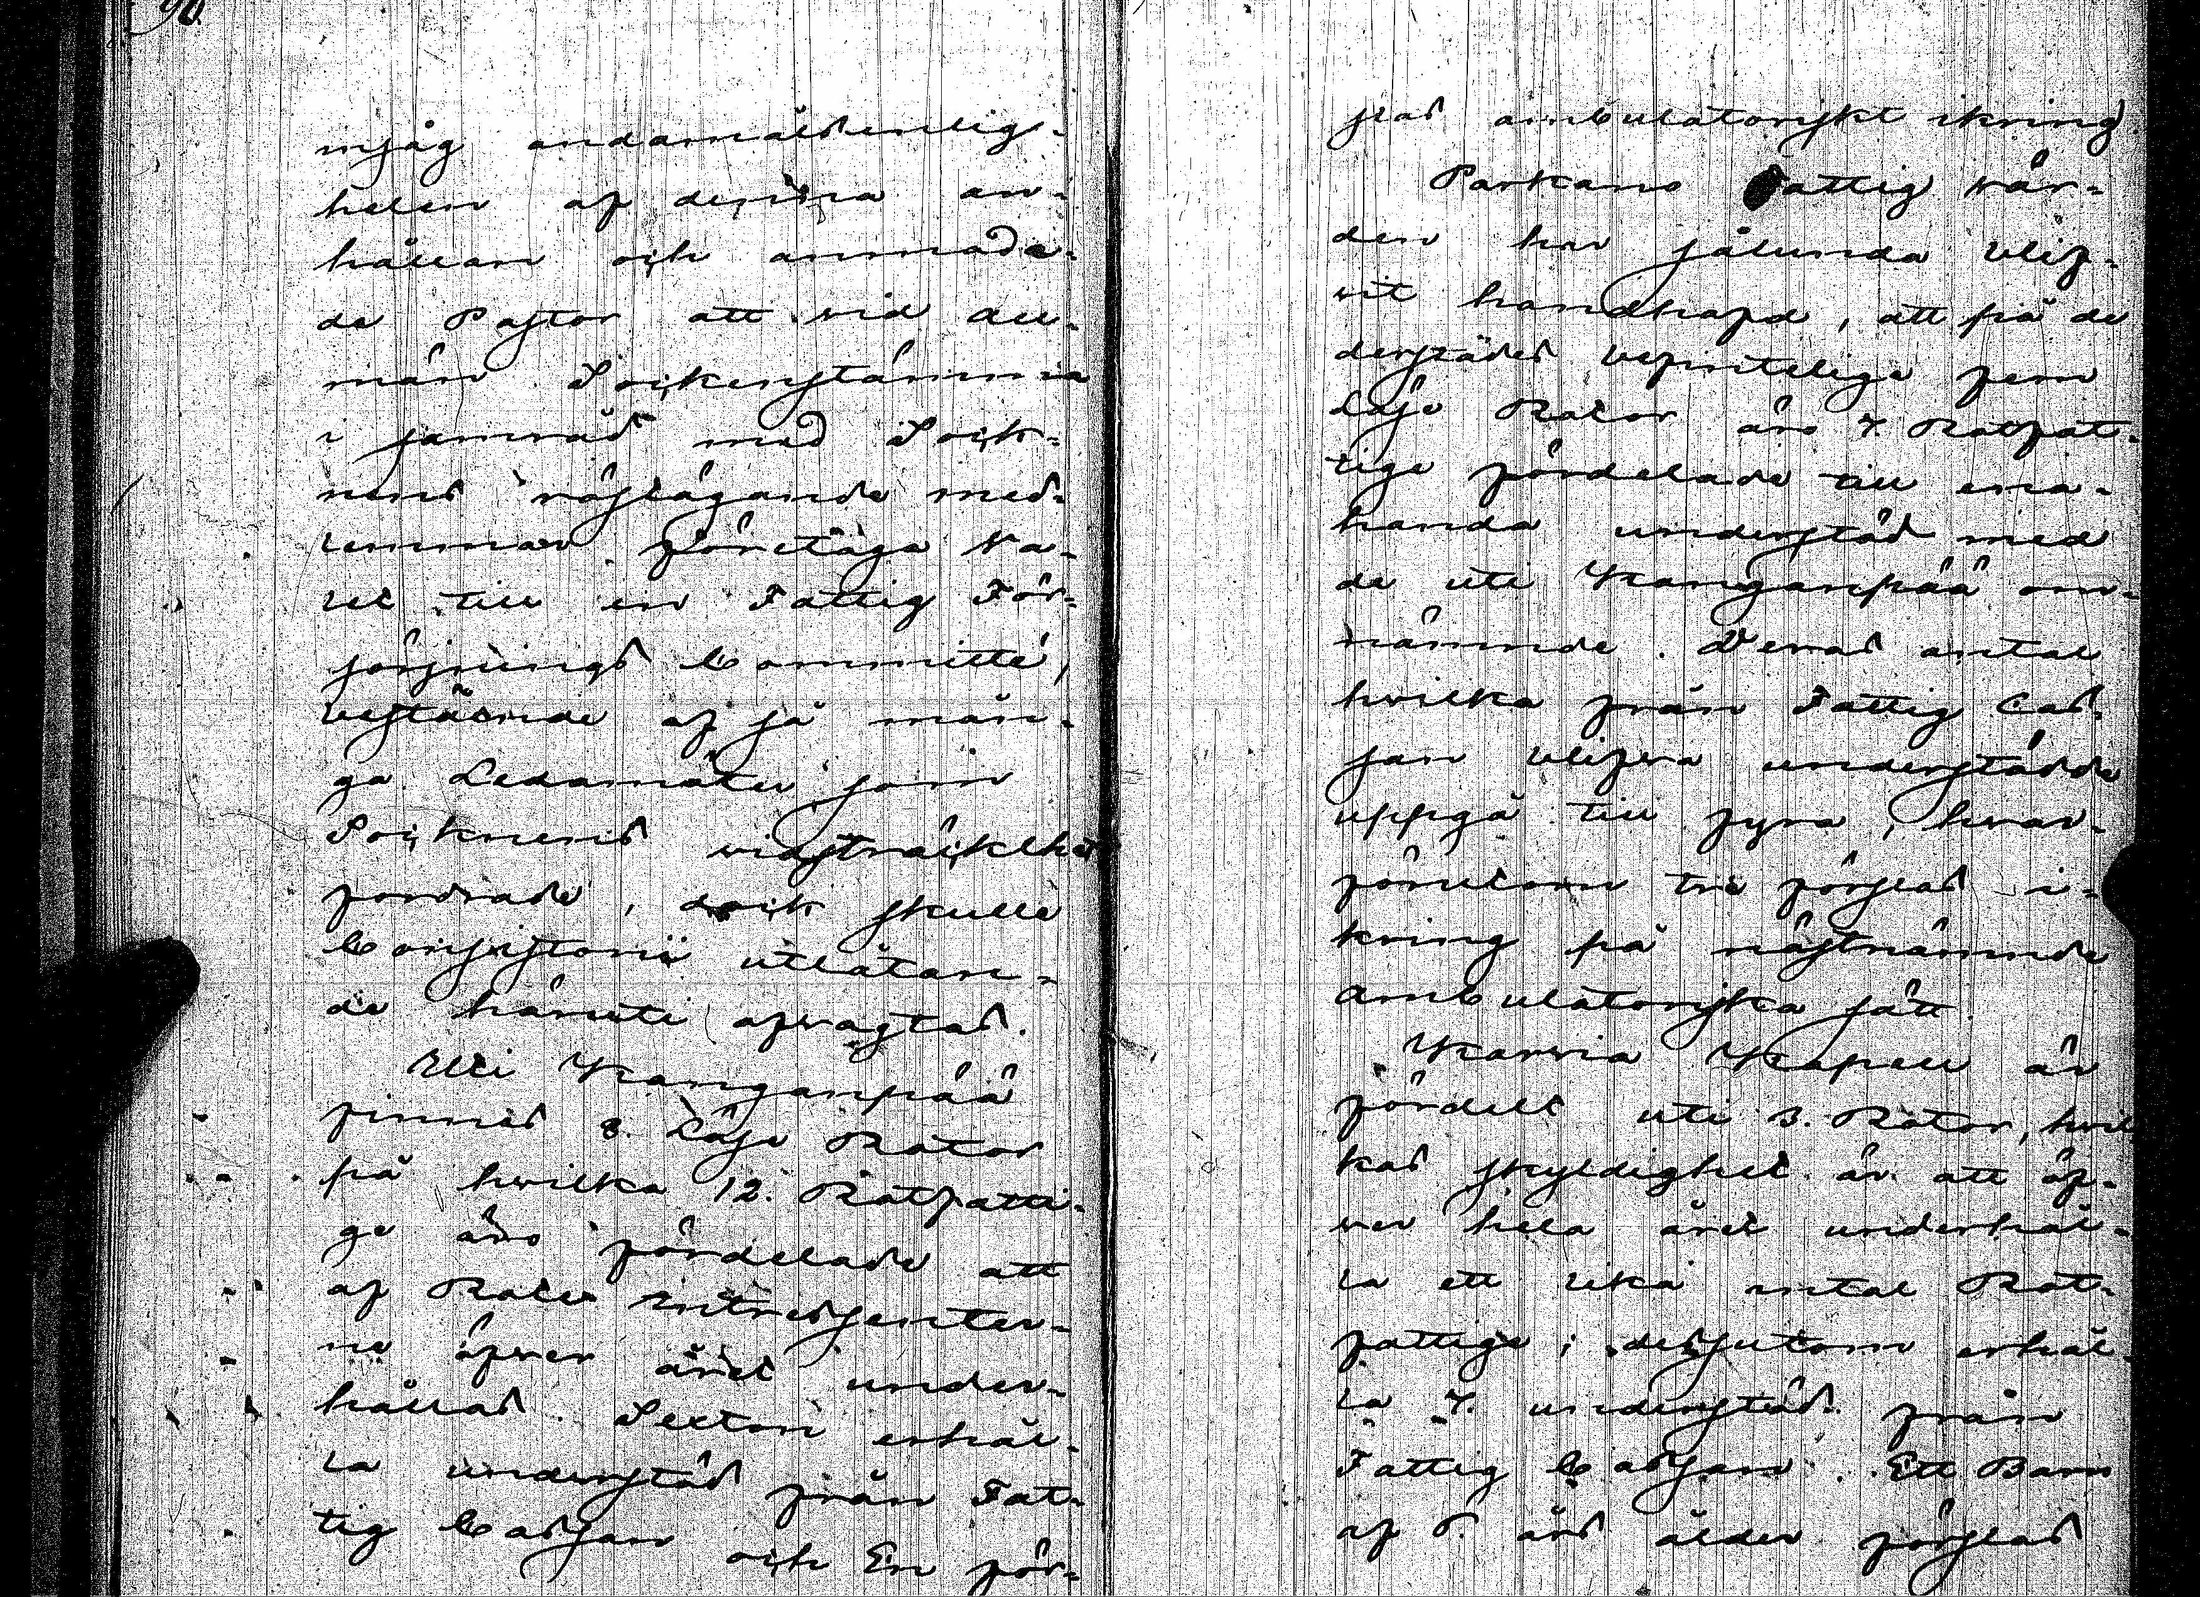 90.
insåg ändamålsenlig-
heten af denna an-
hållan och anmoda-
de Pastor att vid all-
män Sockenstämma
i samråd med Sock-
nens röstägande med-
lemmar företaga va-
let till en Fattig För-
sörjnings Committé,
bestående af så mån-
ga Ledamöter som
Socknens vidsträckthet
fordrade, dock skulle
Consistorii utlåtan-
de häruti afvagtas.
Uti Kanganpää
finnas 8. Löse Rotor
på hwilka 12. Rotfatti-
ge äro fördelade att
af Rote Intressenter-
ne öfver året under-
hållas. Sexton erhål-
la understöd från Fat-
tig Cassan och En för-
slas ambulatoriskt ikring
Parkano Fattig vår-
den har sålunda blif-
vit handhafd, att på de
derstädes befintelige fem
Löse Rotor äro 7. Rotfat-
tige fördelade till ena-
handa understöd med
de uti Kanganpää om-
nämnde. Deras antal
hvilka från Fattig Cas-
san blifva understödde
uppgå till fyra, hvar-
förutom tre förslas i-
kring på nästnämnde
ambulatoriska sätt.
Karvia Kapell är
fördelt uti 3. Rotor, hvil
kas skyldighet är att öf-
ver hela året underhål-
la ett lika antal Rot-
fattige; dessutom erhål-
la 7. understöd från
Fattig Cassan. Ett Barn
af års ålder förslas